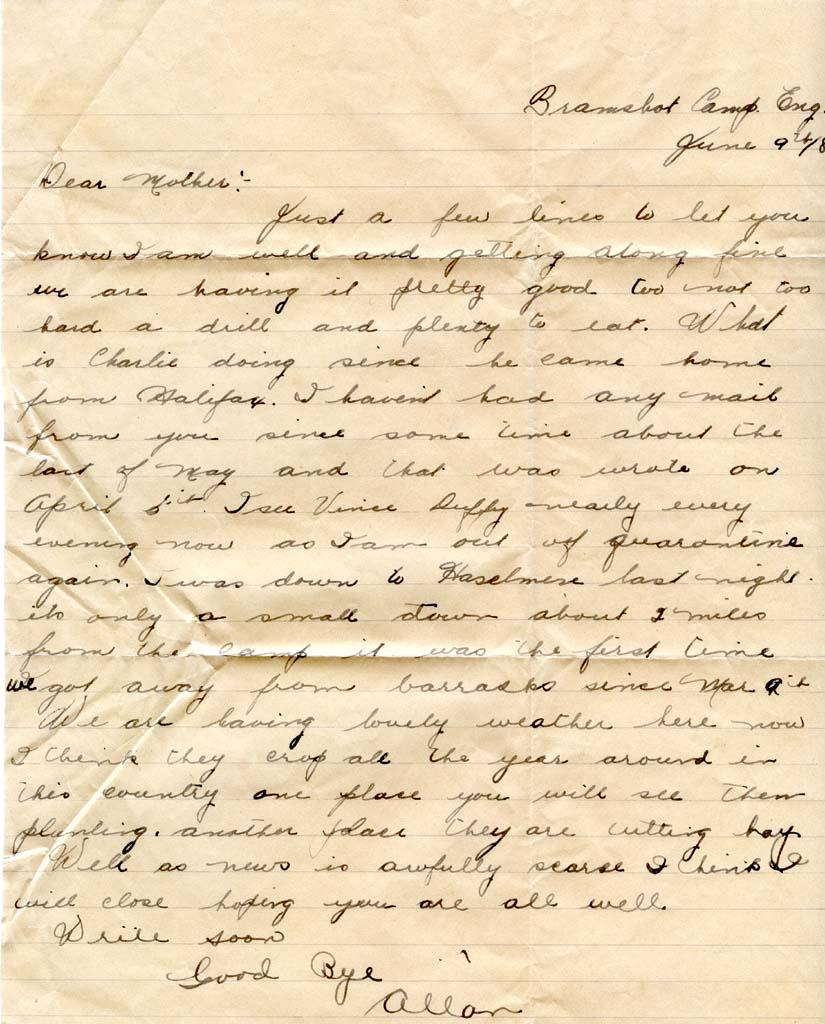 Bramshot Camp. Eng.
June 9th/18
Dear Mother:-
Just a few lines to let you
know I am well and getting along fine
we are having it pretty good too not too
hard a drill and plenty to eat. What
is Charlie doing since he came home
from Halifax. I havent had any mail
from you since some time about the
last of May and that was wrote on
April 5th. I see Vince Duffy nearly every
evening now as I am out of quarantine
again. I was down to Haselmere last night.
its only a small town about 2 miles
from the camp it was the first time
we got away from barracks since Mar 9th
We are having lovely weather here now
I think they crop all the year around in
this country one place you will see them
plunting. another place they are cutting hay
Well as news is awfully scarse I think I
will close hoping you are all well.
Write soon
Good Bye
Allan